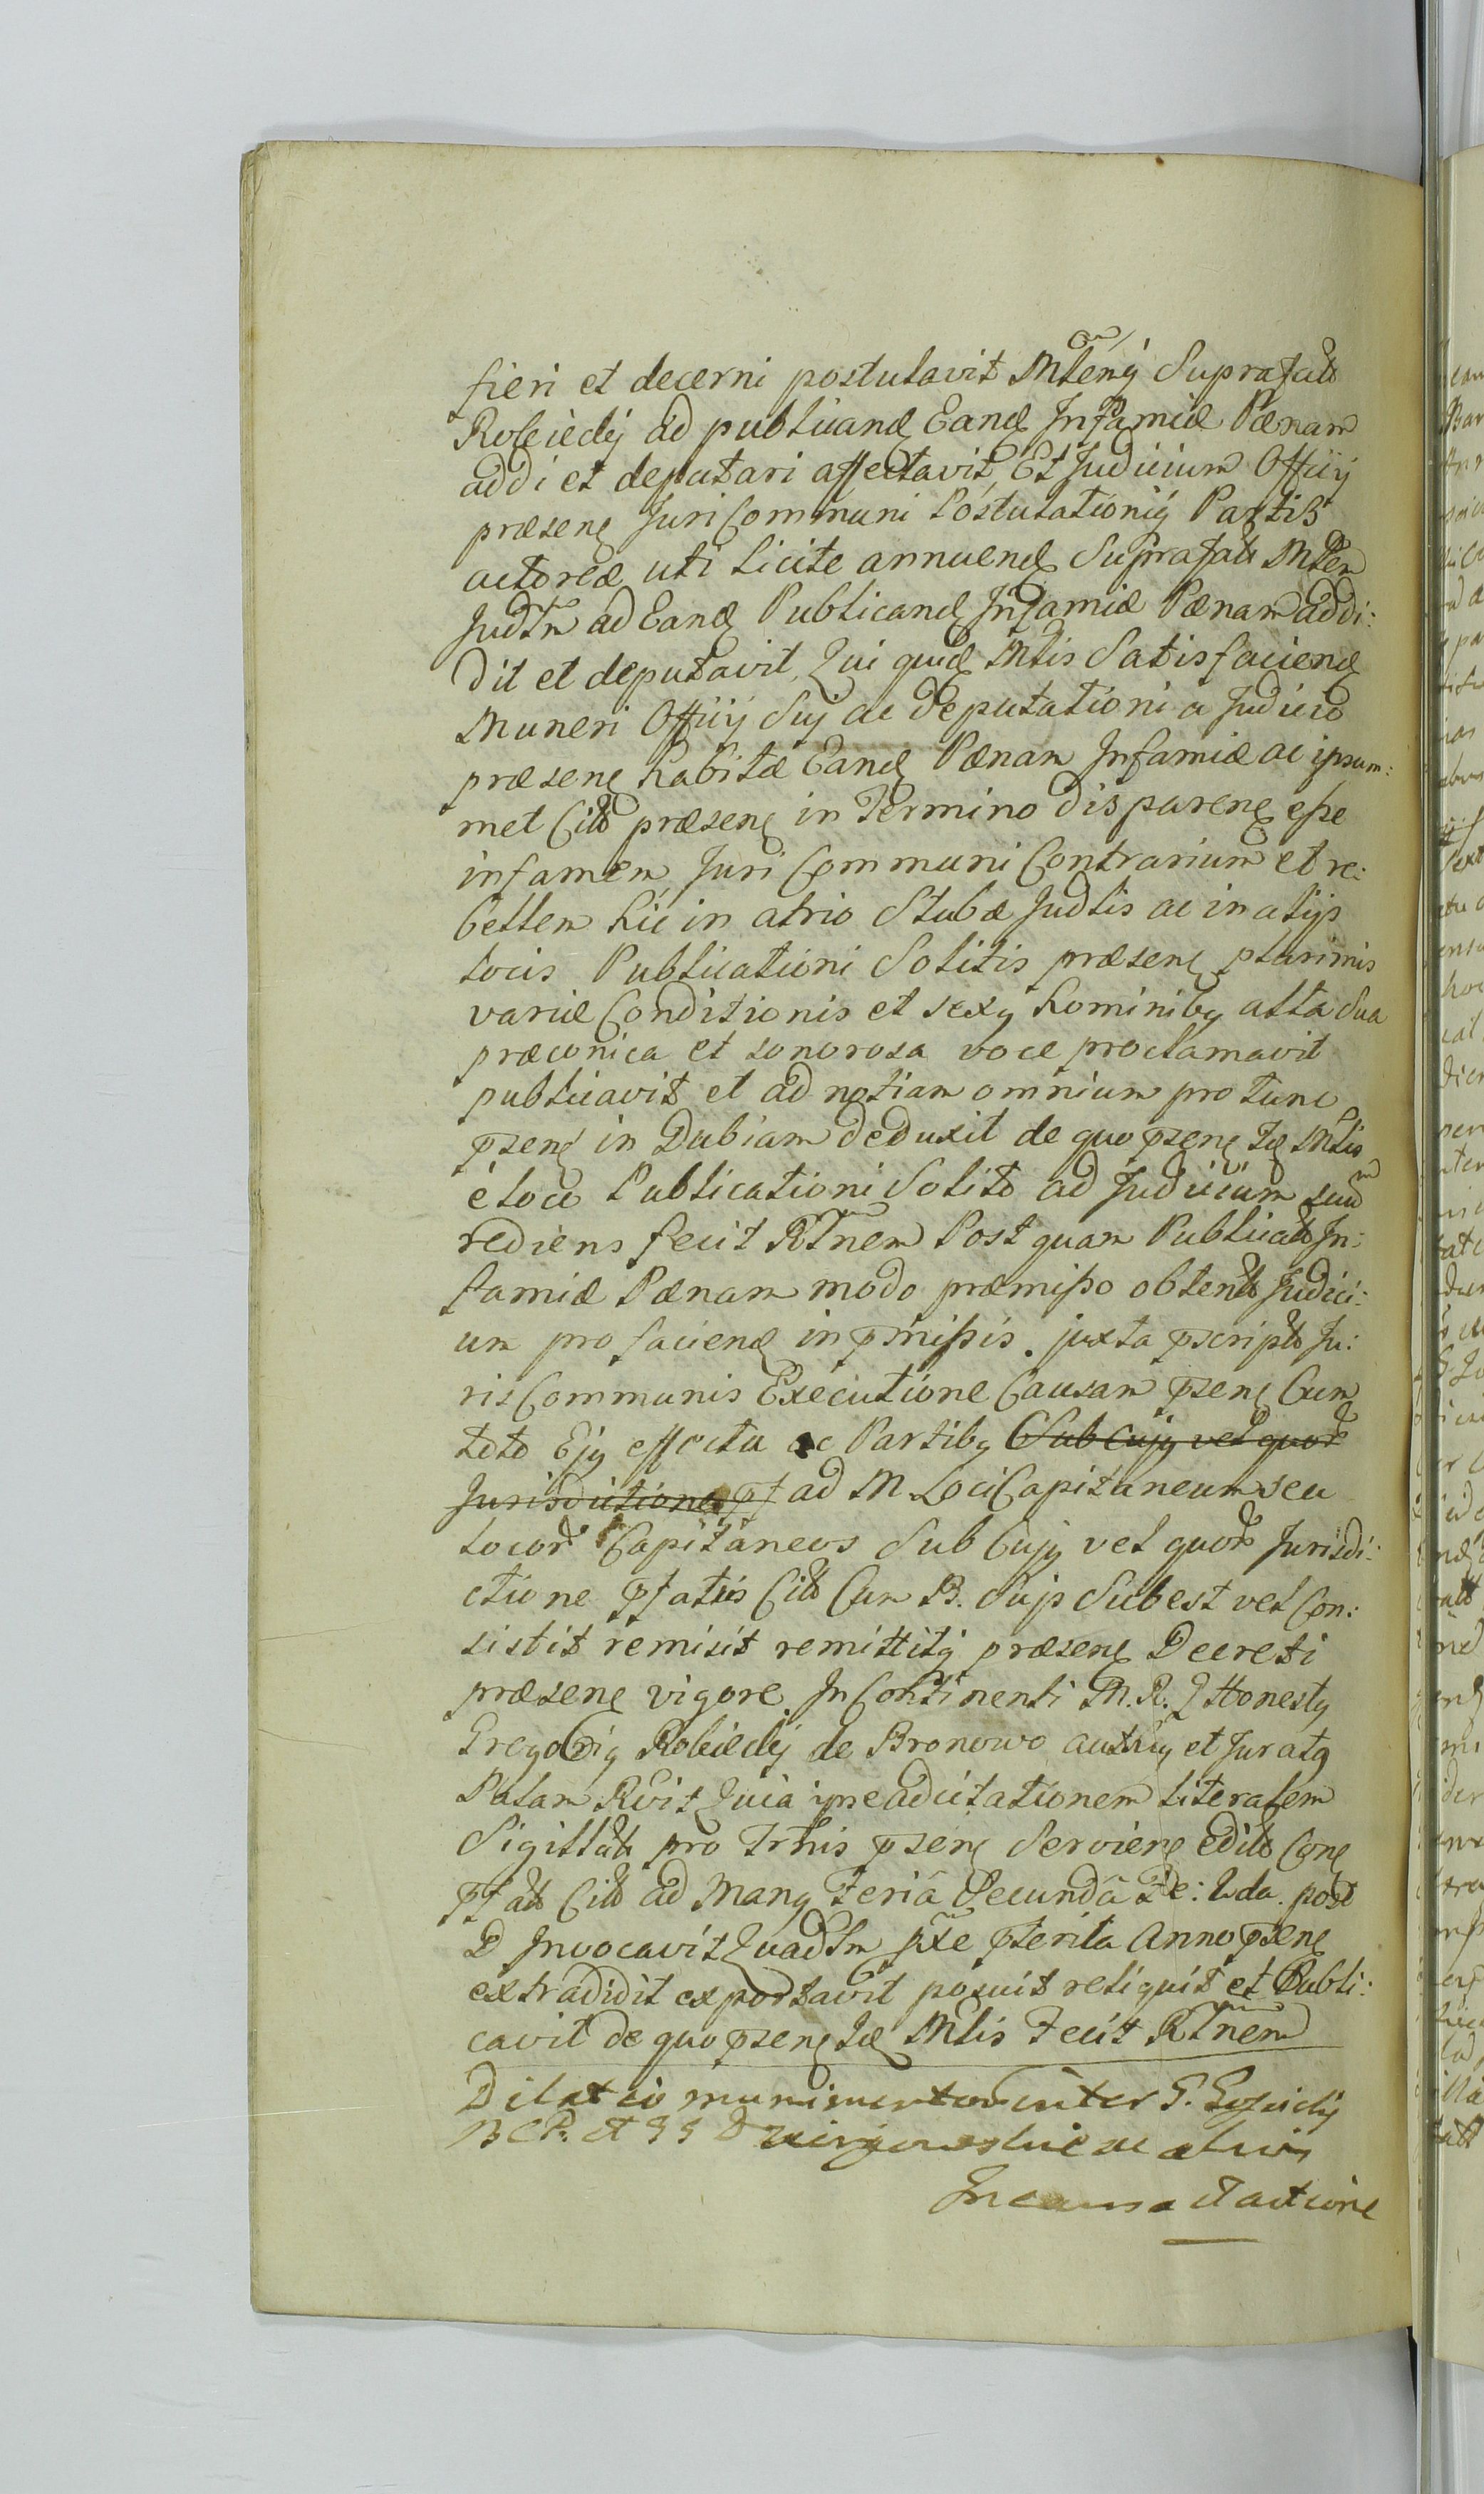 fieri et decerni postulavit Mltenq Suprafatt
Robiedij ad publicand Eand Infamiæ Pænam
addi et deputari affectavit, Et Judicium Offiij
præsenę Juri Communi Postulationiq Partis
actoreæ uti licite annuend Suprafatt Mltem
Judtm ad Eand Publicand Infamiæ Pænam addi:
dit et deputavit, Qui quid Mltis Satisfaciend
Muneri Offiij Suj ac deputationi a Judicio
præsenę habitæ Eand Pænam Infamiæ ac ipsum:
met Citt præsenę in Termino disparenę eße
infamem Juri Communi Contrarium et re:
bellem hic in atrio Stubæ Judtis ac in alijs
locis Publicationi Solitis præsenę plurimis
variæ Conditionis et sexq hominibq alta Sua
præconica et sonorosa voce proclamavit
publicavit et ad notiam omnium pro tunc
pseną in Dubiam deduxit de quo psenę Iæ Mltis
è loco Publicationi Solito ad Judicium suum
rediens fecit RTnem Post quam Publicatt In:
famiæ Pænam modo præmißo obtentt Judici:
um pro faciend in pmißis. juxta pscriptt Ju:
ris Communis Executione Causam psenę Cum
toto Ejq effectu ac Partibq Sub Cujq vel quor
Jurisdictione pf ad M. Loci Capitaneum seu
locor Capitaneos Sub Cujq vel quor Jurisdi:
ctione pfatus Citt Cum B. Sujs Subest vel Con:
sistit remisit remittitq præsenę Decreti
præsenę vigore. In Continenti M. R. Q Honestq
Gregoriq Robiedij de Bronowo autus et Juratq
Palam Rvit Quia ipse adcitationem literalem
Sigillatt pro Trnis psenę Servienę editt Conę
pfatt Citt ad Manq Feriâ Secundâ Fe: 2da. post
D Invocavit Quadlm pxe pterita Anno psenę
extradidit exportavit posuit reliquit et Publi:
cavit de quo psenę Iæ Mltis Fecit RTnem
Dilatio munimentor inter G.
B C P. et GG ac alios
In causa et actione